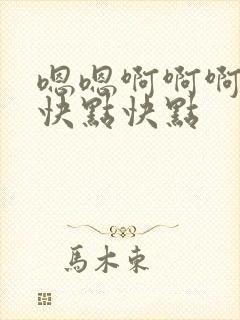 嗯嗯啊啊啊
快點快點
馬木東